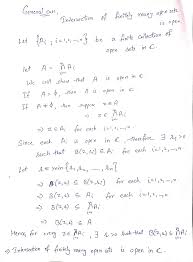 General case,
Intersection of finitely many open sets
is open.
Let {Ai ; i=1,2,--,n} be a finite collection of
open sets in C.
Let A = ∩ Ai
We will show that A is open in C
If A = φ, then A is open in C
If A ≠ φ, then suppose z ∈ A
⇒ z ∈ ∩ Ai
⇒ z ∈ Ai for each i=1,2,--,n
Since each Ai is open in C, therefore ∃ ri>0
such that B(z,ri) ⊆ Ai for each i=1,2,--,n
Let r = min{r1,r2,--,rn}
⇒ B(z,r) ⊆ B(z,ri) for each i=1,2,--,n
⇒ B(z,r) ⊆ Ai for each i=1,2,--,n
⇒ B(z,r) ⊆ ∩ Ai
⇒ B(z,r) ⊆ A
Hence, for every z ∈ ∩ Ai, ∃ r>0 such that B(z,r) ⊆ ∩ Ai
⇒ Intersection of finitely many open sets is open in C.